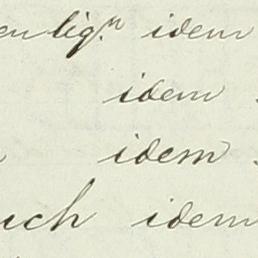 enlig.n idem
idem
idem
uch idem